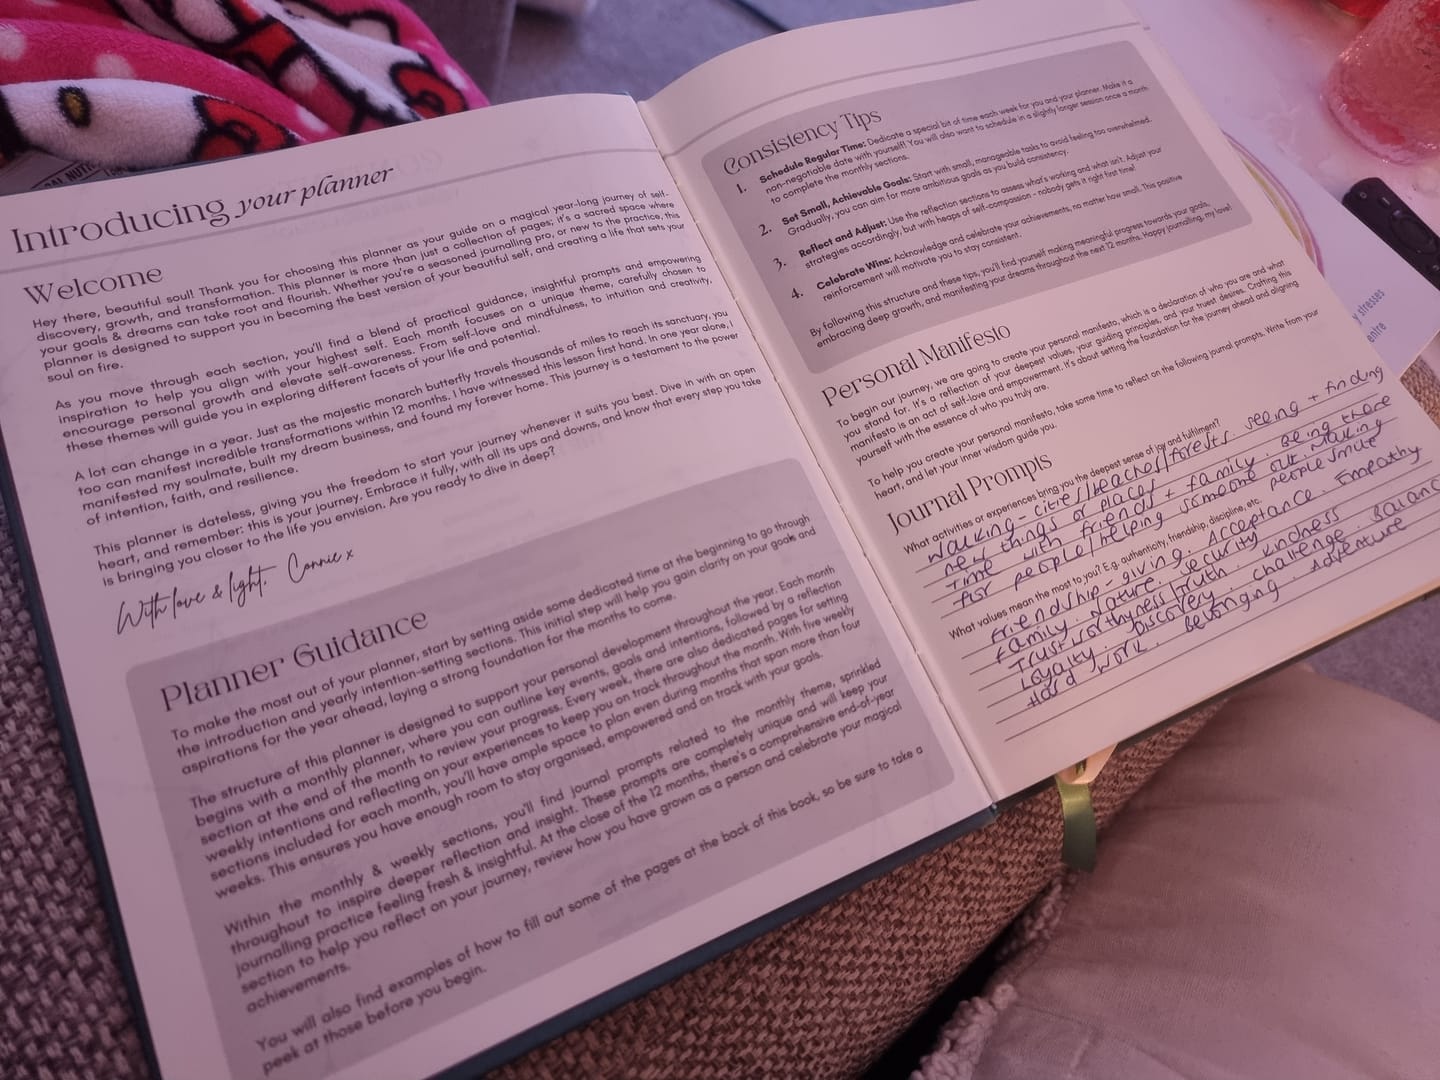 Introducing your planner
Welcome
Hey there, beautiful soul! Thank you for choosing this planner as your guide on a magical year-long journey of self-
discovery, growth, and transformation. This planner is more than just a collection of pages; it's a sacred space where
your goals & dreams can take root and flourish. Whether you're a seasoned journalling pro, or new to the practice, this
planner is designed to support you in becoming the best version of your beautiful self, and creating a life that sets your
soul on fire.
As you move through each section, you'll find a blend of practical guidance, insightful prompts and empowering
inspiration to help you align with your highest self. Each month focuses on a unique theme, carefully chosen to
encourage personal growth and elevate self-awareness. From self-love and mindfulness, to intuition and creativity,
these themes will guide you in exploring different facets of your life and potential.
A lot can change in a year. Just as the majestic monarch butterfly travels thousands of miles to reach its sanctuary, you
too can manifest incredible transformations within 12 months. I have witnessed this lesson first hand. In one year alone, I
manifested my soulmate, built my dream business, and found my forever home. This journey is a testament to the power
of intention, faith, and resilience.
This planner is dateless, giving you the freedom to start your journey whenever it suits you best. Dive in with an open
heart, and remember: this is your journey. Embrace it fully, with all its ups and downs, and know that every step you take
is bringing you closer to the life you envision. Are you ready to dive in deep?
With love & light, Connie x
Planner Guidance
To make the most out of your planner, start by setting aside some dedicated time at the beginning to go through
the introduction and yearly intention-setting sections. This initial step will help you gain clarity on your goals and
aspirations for the year ahead, laying a strong foundation for the months to come.
The structure of this planner is designed to support your personal development throughout the year. Each month
begins with a monthly planner, where you can outline key events, goals and intentions, followed by a reflection
section at the end of the month to review your progress. Every week, there are also dedicated pages for setting
weekly intentions and reflecting on your experiences to keep you on track throughout the month. With five weekly
sections included for each month, you'll have ample space to plan even during months that span more than four
weeks. This ensures you have enough room to stay organised, empowered and on track with your goals.
Within the monthly & weekly sections, you'll find journal prompts related to the monthly theme, sprinkled
throughout to inspire deeper reflection and insight. These prompts are completely unique and will keep your
journalling practice feeling fresh & insightful. At the close of the 12 months, there's a comprehensive end-of-year
section to help you reflect on your journey, review how you have grown as a person and celebrate your magical
achievements.
You will also find examples of how to fill out some of the pages at the back of this book, so be sure to take a
peek at those before you begin.
Consistency Tips
1. Schedule Regular Time: Dedicate a special bit of time each week for you and your planner. Make it a
non-negotiable date with yourself! You will also want to schedule in a slightly longer session once a month
to complete the monthly sections.
2. Set Small, Achievable Goals: Start with small, manageable tasks to avoid feeling too overwhelmed.
Gradually, you can aim for more ambitious goals as you build consistency.
3. Reflect and Adjust: Use the reflection sections to assess what's working and what isn't. Adjust your
strategies accordingly, but with heaps of self-compassion - nobody gets it right first time!
4. Celebrate Wins: Acknowledge and celebrate your achievements, no matter how small. This positive
reinforcement will motivate you to stay consistent.
By following this structure and these tips, you'll find yourself making meaningful progress towards your goals,
embracing deep growth, and manifesting your dreams throughout the next 12 months. Happy journalling, my love!
Personal Manifesto
To begin our journey, we are going to create your personal manifesto, which is a declaration of who you are and what
you stand for. It's a reflection of your deepest values, your guiding principles, and your truest desires. Crafting this
manifesto is an act of self-love and empowerment. It's about setting the foundation for the journey ahead and aligning
yourself with the essence of who you truly are.
To help you create your personal manifesto, take some time to reflect on the following journal prompts. Write from your
heart, and let your inner wisdom guide you.
Journal Prompts
What activities or experiences bring you the deepest sense of joy and fulfilment?
Walking - cities/beaches/forests. seeing + finding
new things or places
Time with friends + family. Being there
for people/helping someone out. Making
people smile
What values mean the most to you? E.g. authenticity, friendship, discipline, etc.
Friendship - giving. Acceptance. Empathy
Family. Nature. Security. Kindness
Trustworthyness/truth. challenge. Balance
Loyalty. Discovery. Adventure
Hard work. Belonging
stresses